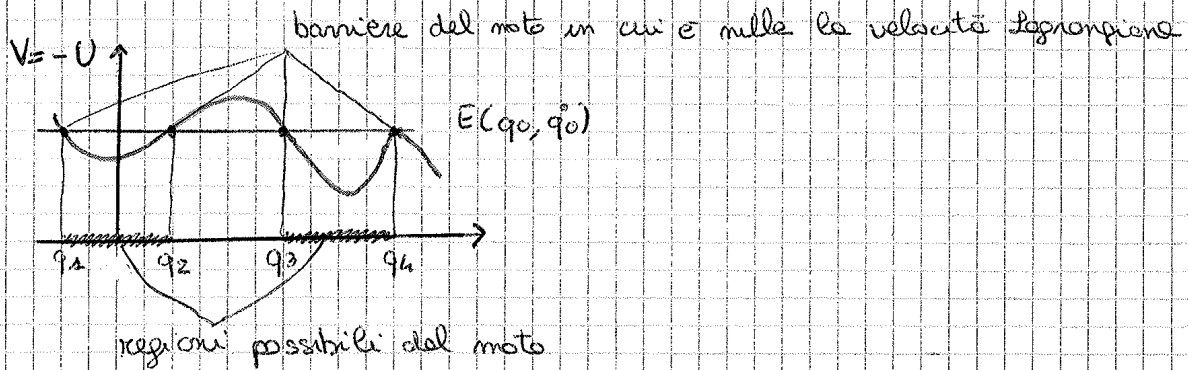 barriere del moto in cui è nulla la velocità Lagrangiana
V = - U
E(q0, q̇0)
q1 q2 q3 q4
regioni possibili del moto